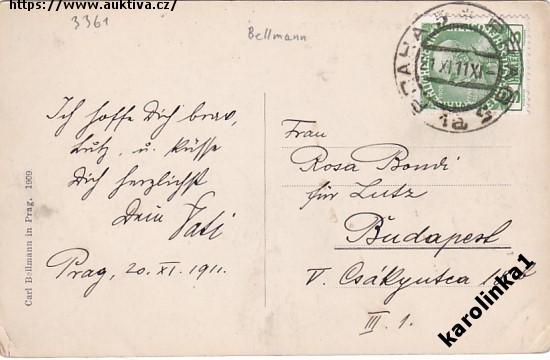 https://www.auktiva.cz/
3361
Bellmann
Ich hoffe Dich brav,
Lutz, u. küsse
Dich herzlichst
Dein Vati
Prag, 20. XI. 1911.
Carl Bellmann in Prag. 1909
Frau
Rosa Bondi
für Lutz
Budapest
V. Csákyutca
III. 1.
karolinka1